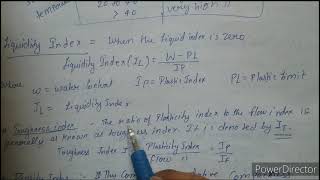 20 to 40
> 40
very high
Liquidity Index = when the Liquid index is zero
Liquidity Index (IL) = W - PL
IP
where, w = water content IP = Plastic Index PL = Plastic Limit
IL = Liquidity Index
Toughness index - The ratio of Plasticity index to the flow index is
generally as known as toughness index. It is denoted by IT.
Toughness Index IT = Plasticity Index = IP
flow If
PowerDirector